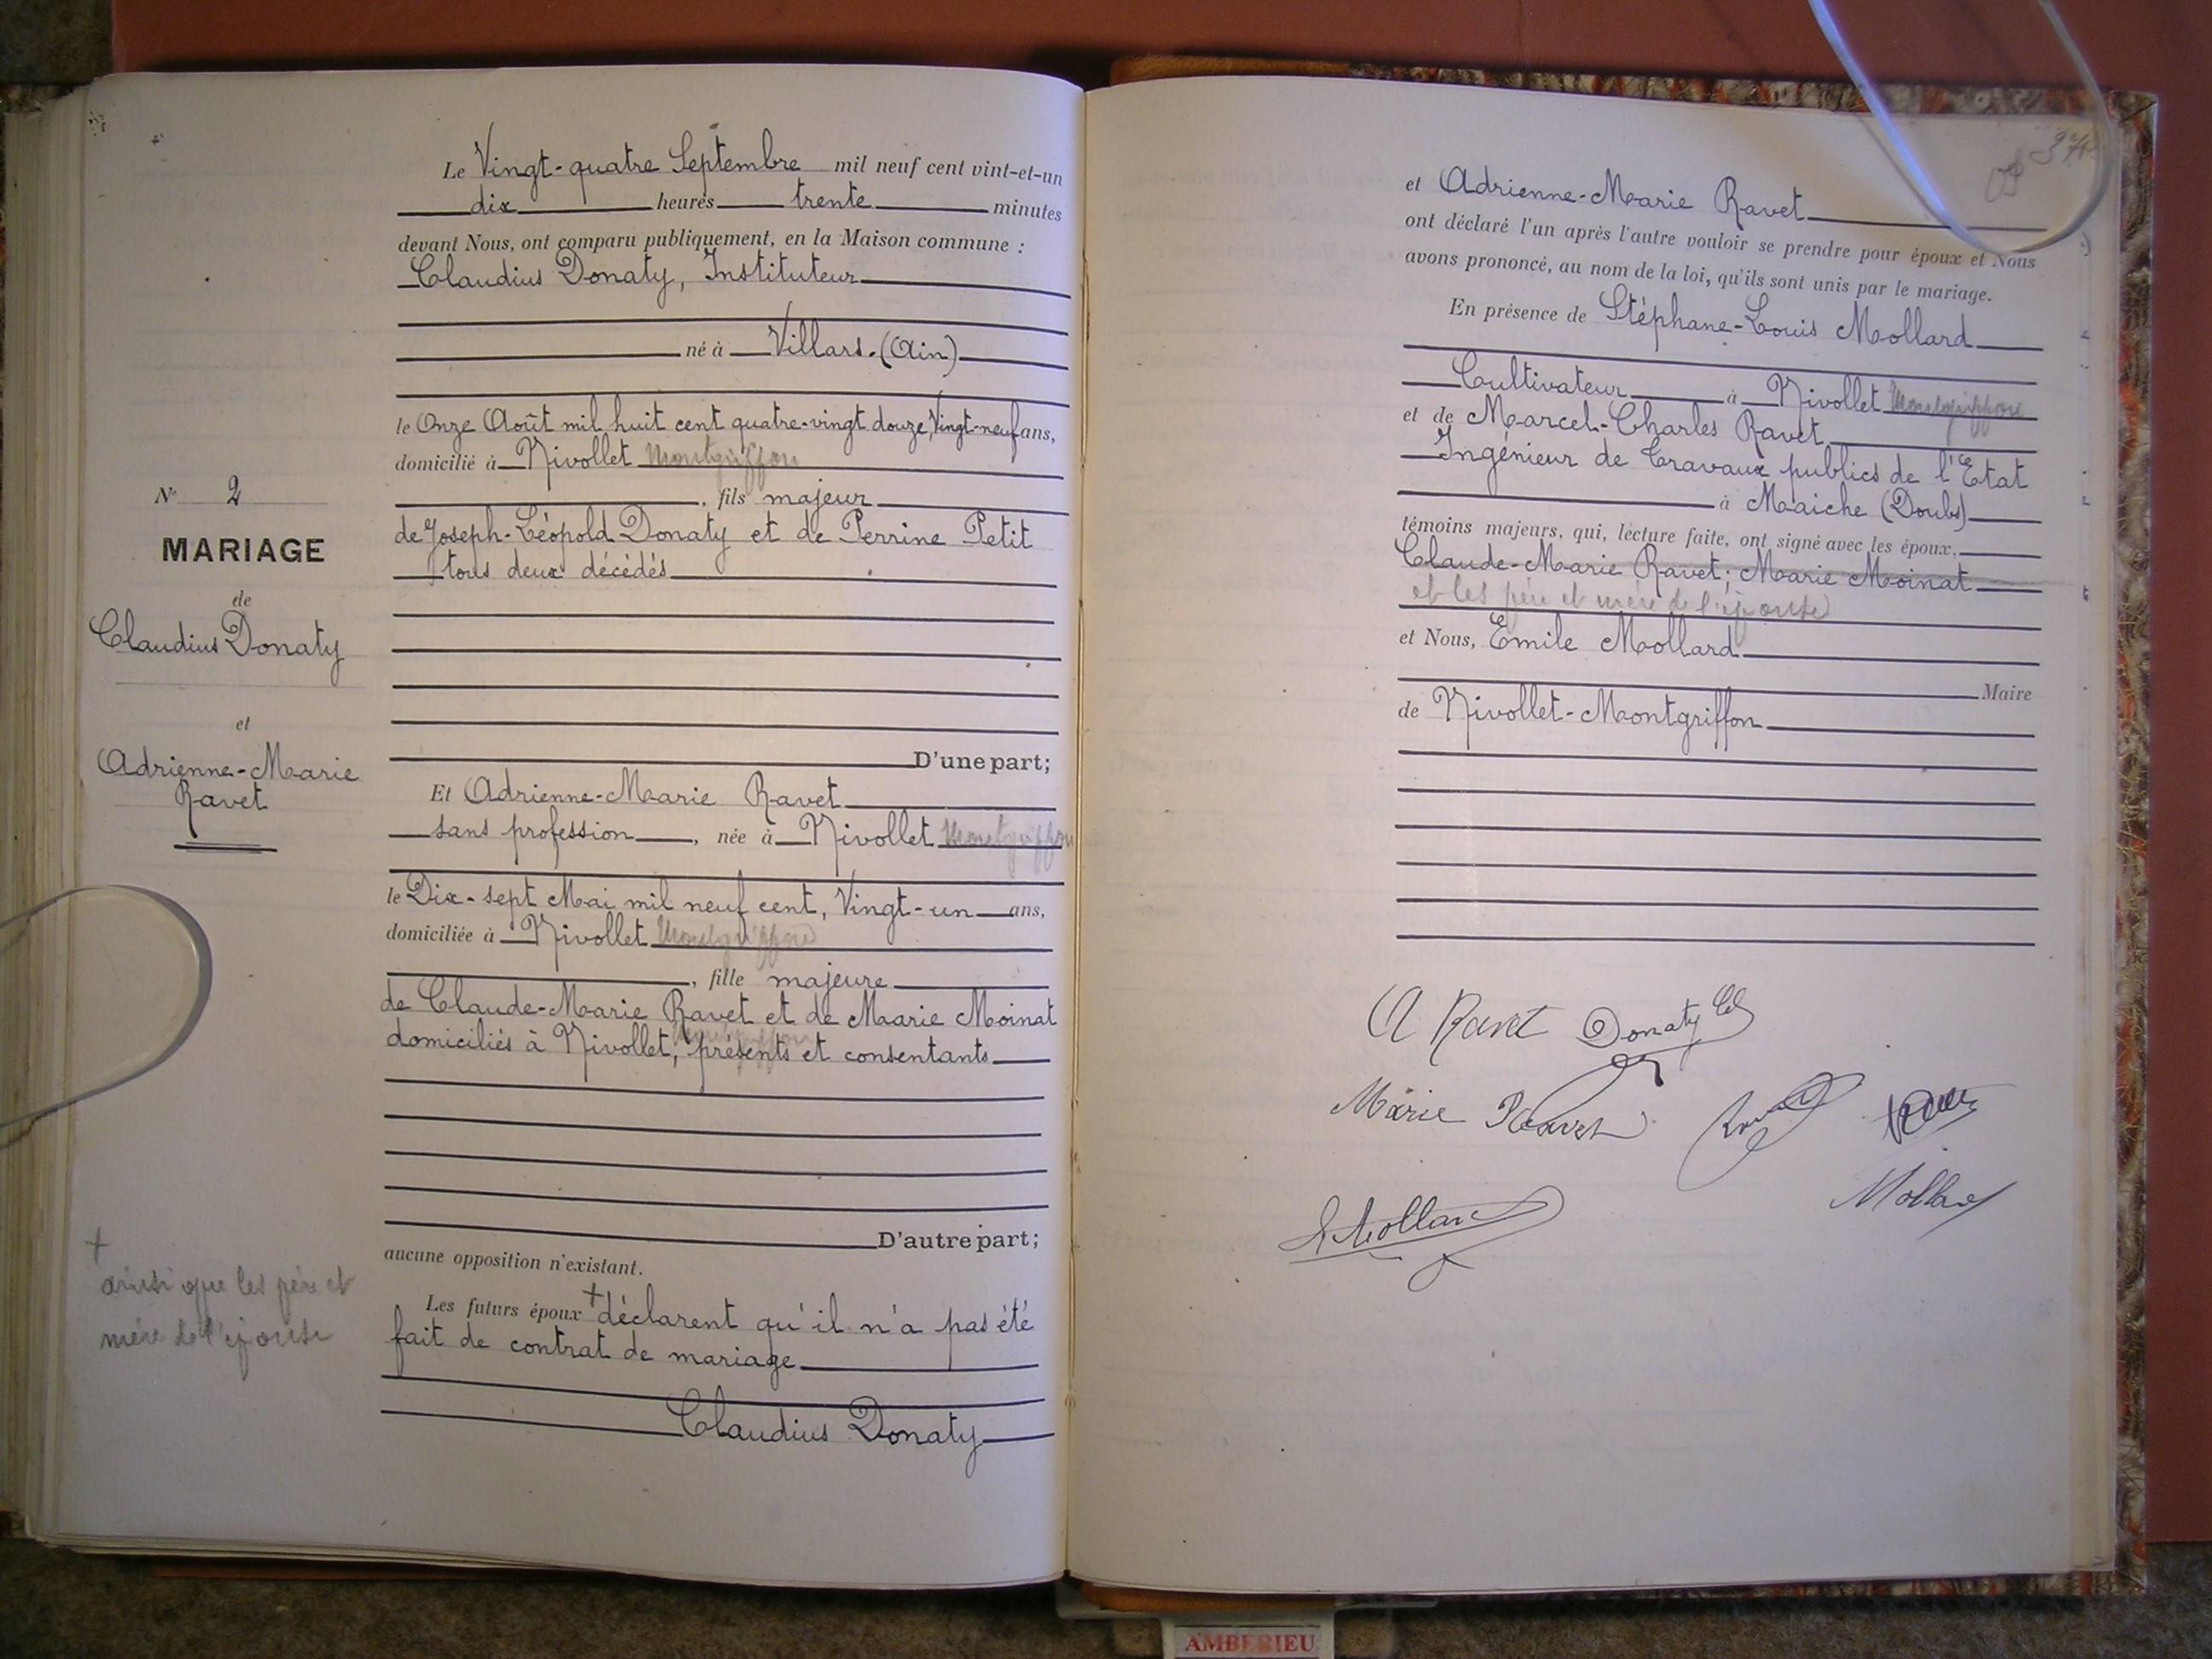 N° 2
MARIAGE
de
Claudius Donaty
et
Adrienne-Marie
Ravet
+
ainsi que les père et
mère de l'épouse
Le Vingt-quatre Septembre mil neuf cent vint-et-un
dix heures trente minutes
devant Nous, ont comparu publiquement, en la Maison commune :
Claudius Donaty, Instituteur
né à Villars.(Ain)
le Onze Août mil huit cent quatre-vingt douze, Vingt-neuf ans,
domicilié à Nivollet Montgriffon
, fils majeur
de Joseph-Léopold Donaty et de Perrine Petit
tous deux décédés
D'une part;
Et Adrienne-Marie Ravet
sans profession, née à Nivollet Montgriffon
le Dix-sept Mai mil neuf cent, Vingt-un ans,
domiciliée à Nivollet Montgriffon
, fille majeure
de Claude-Marie Ravet et de Marie Moinat
domiciliés à Nivollet, Montgriffon présents et consentants
D'autre part;
aucune opposition n'existant.
Les futurs époux + déclarent qu'il n'a pas été
fait de contrat de mariage
Claudius Donaty
374
et Adrienne-Marie Ravet
ont déclaré l'un après l'autre vouloir se prendre pour époux et Nous
avons prononcé, au nom de la loi, qu'ils sont unis par le mariage.
En présence de Stéphane-Louis Mollard
Cultivateur à Nivollet Montgriffon
et de Marcel-Charles Ravet
Ingénieur de Travaux publics de l'Etat
à Maiche (Doubs)
témoins majeurs, qui, lecture faite, ont signé avec les époux,
Claude-Marie Ravet; Marie Moinat
et les père et mère de l'épouse
et Nous, Emile Mollard
Maire
de Nivollet-Montgriffon
A Ravet Donaty Cl
Marie Ravet
Mollard
Mollard
AMBERIEU